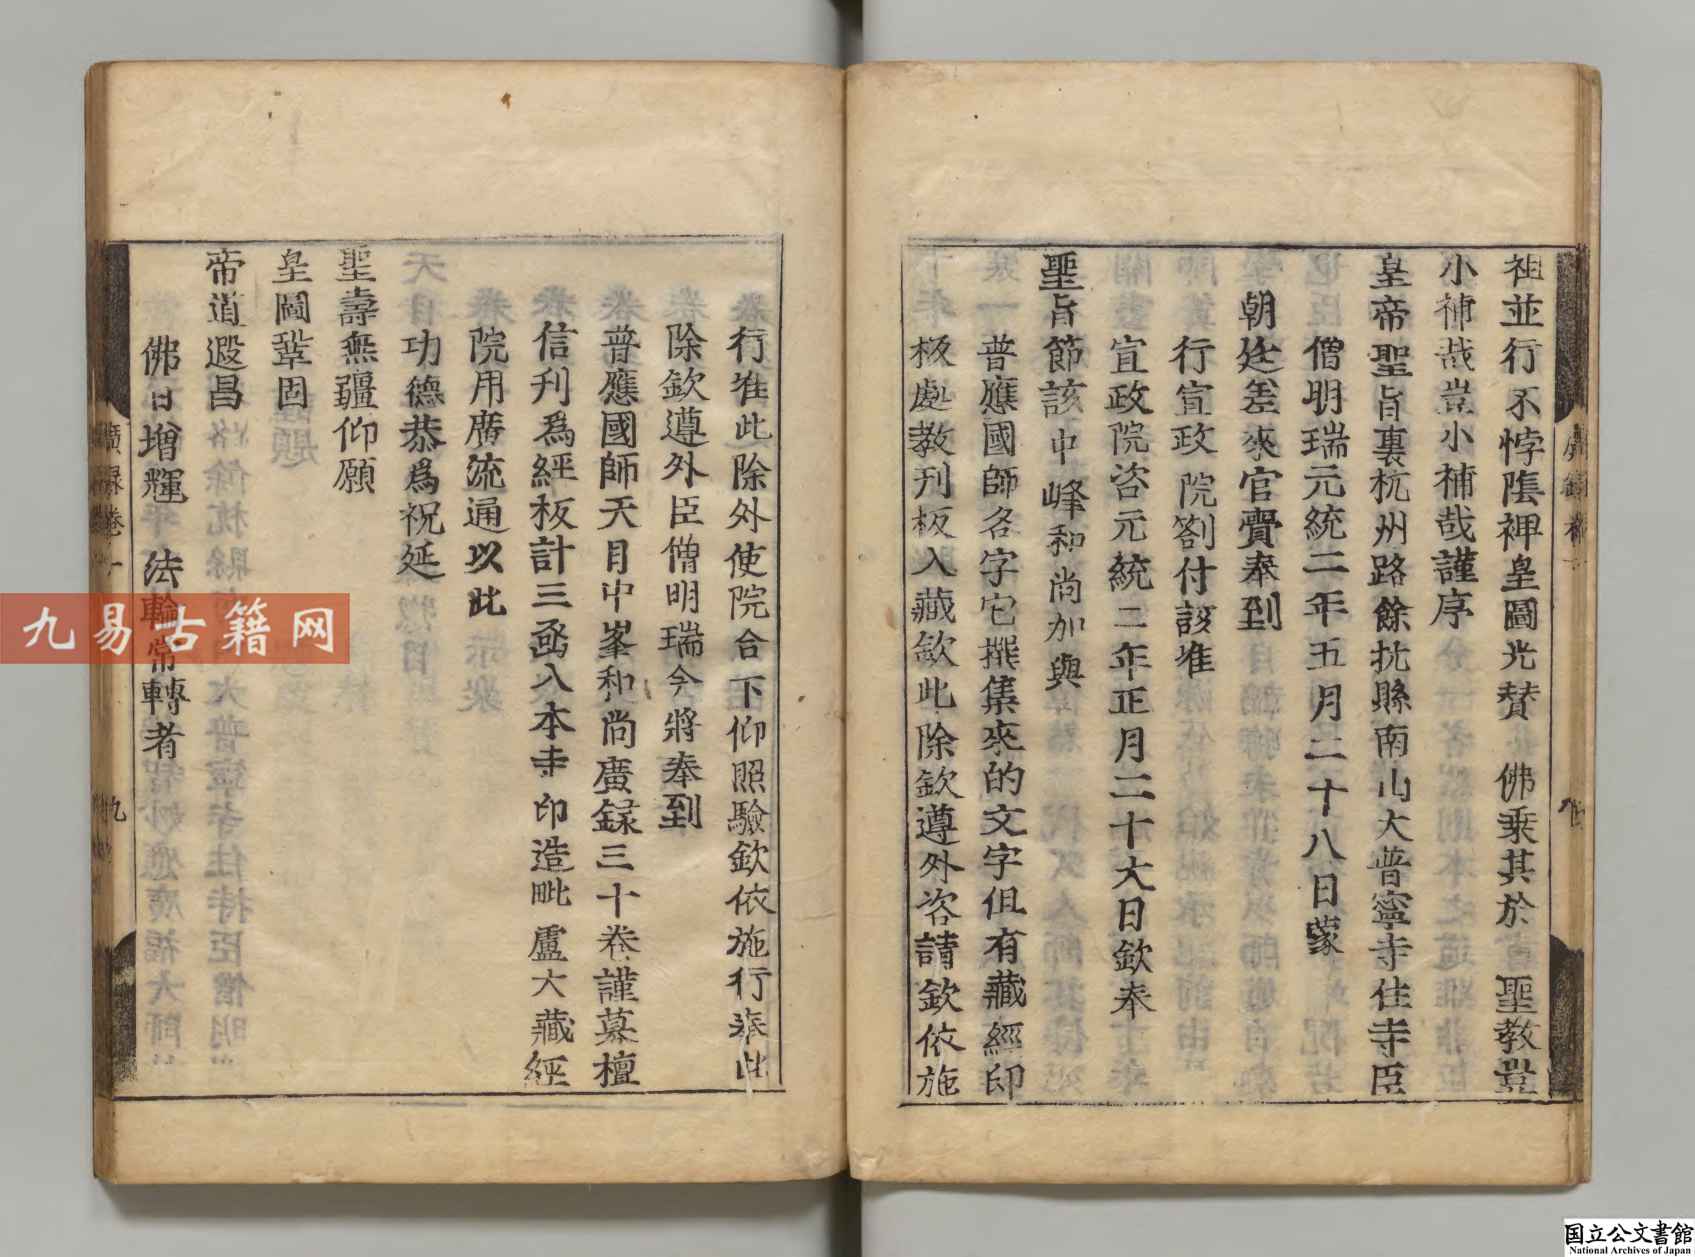 祖並行不悖陰裨皇圖光賛　佛乗其於　聖教豈
小補哉豈小補哉謹序
皇帝聖旨裏杭州路餘抗縣南山大普寧寺住寺臣
僧明瑞元統二年五月二十八日蒙
朝廷差來官賫奉到
行宣政院劄付該准
宣政院咨元統二年正月二十六日欽奉
聖旨節該中峰和尚加與
普應國師名字它撰集來的文字但有藏經印
板處教刊板入藏欽此除欽遵外咨請欽依施
行准此除外使院合下仰照驗欽依施行奉此
除欽遵外臣僧明瑞今將奉到
普應國師天目中峯和尚廣録三十卷謹募檀
信刊爲經板計三函入本寺印造毗盧大藏經
院用廣流通以此
功德恭爲祝延
聖壽無疆仰願
皇圖鞏固
帝道遐昌
佛日增輝　法輪常轉者
廣録卷
九
九易古籍网
国立公文書館
National Archives of Japan